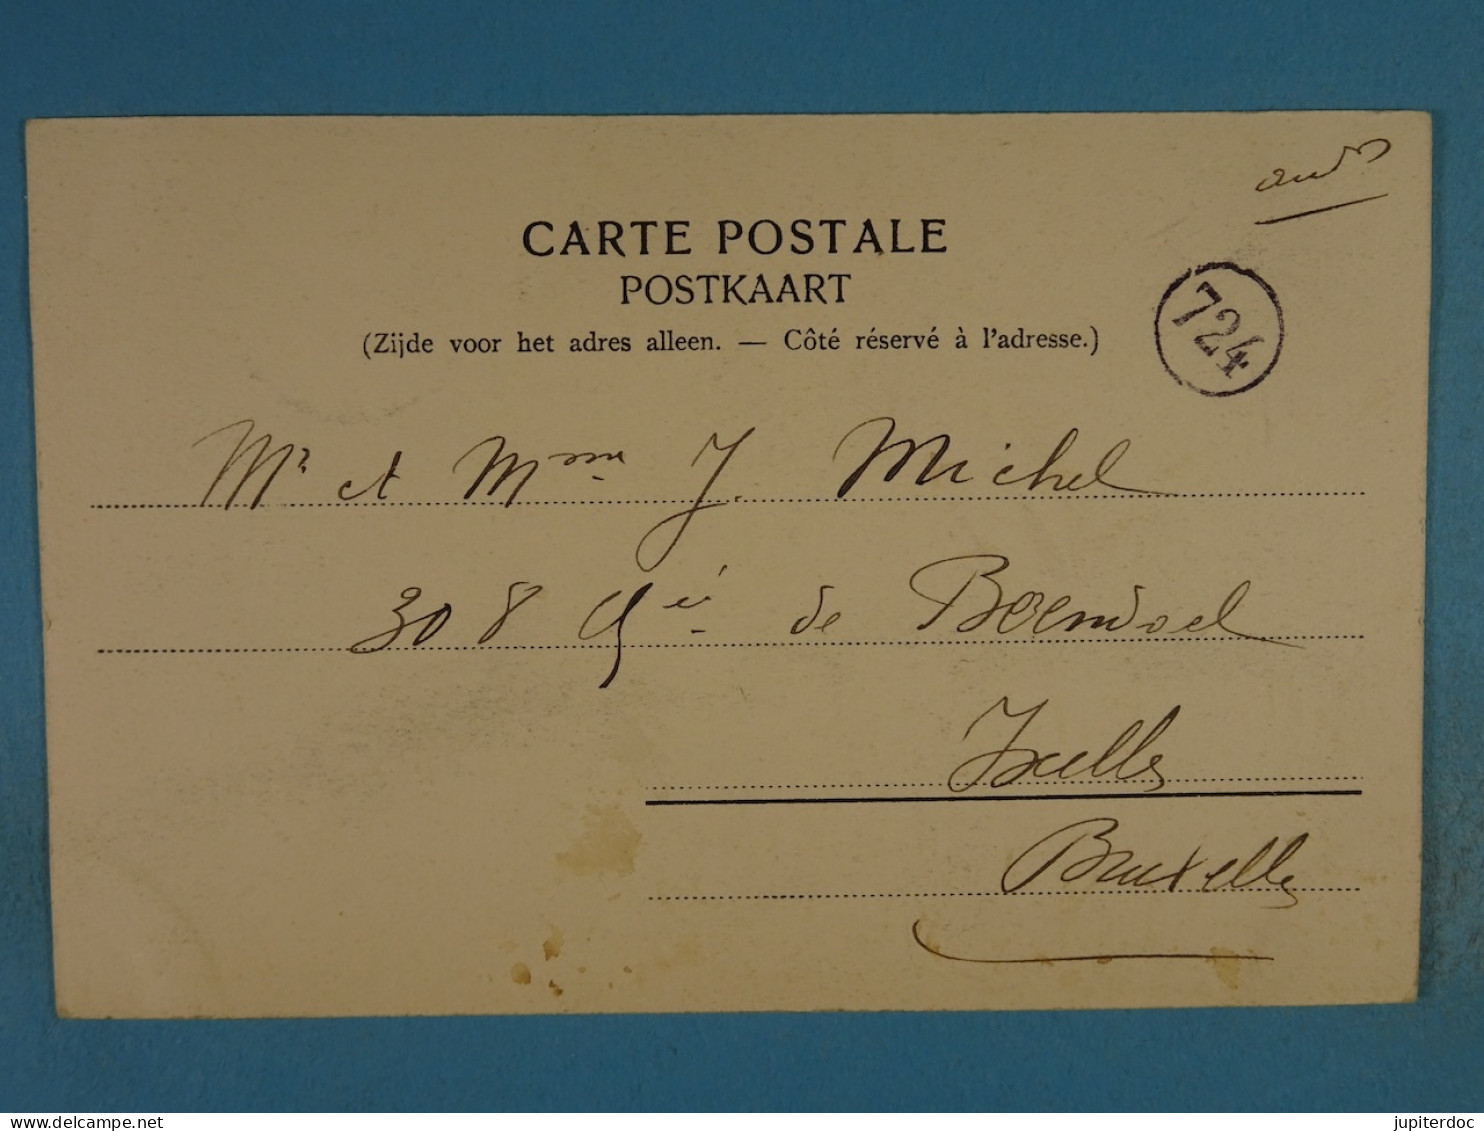 CARTE POSTALE
POSTKAART
(Zijde voor het adres alleen. — Côté réservé à l'adresse.)
724
Mr et Mme J. Michel
308 de Boendael
Ixelles
Bruxelles
jupiterdoc